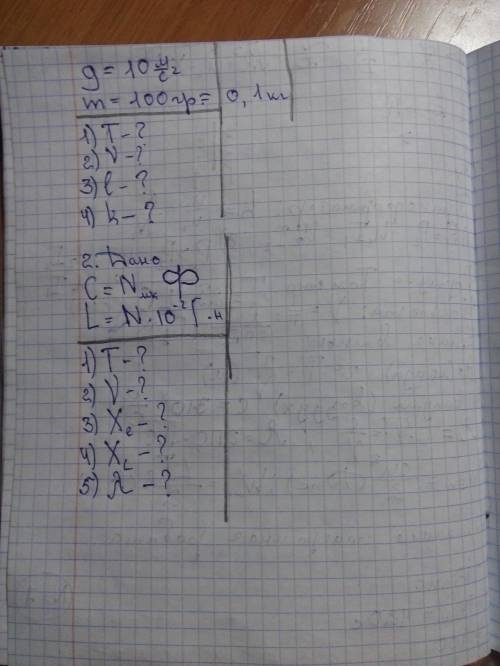 g = 10 м/с²
m = 100гр = 0,1кг
1) T - ?
2) V - ?
3) l - ?
4) k - ?
2. Дано
C = N мк Ф
L = N · 10⁻² Г·н
1) T - ?
2) V - ?
3) Xc - ?
4) XL - ?
5) λ - ?